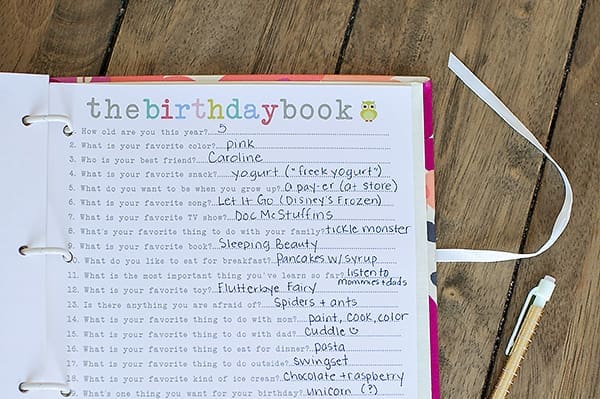 thebirthdaybook
1. How old are you this year? 5
2. What is your favorite color? pink
3. Who is your best friend? Caroline
4. What is your favorite snack? yogurt ("freek yogurt")
5. What do you want to be when you grow up? a pay-er (at store)
6. What is your favorite song? Let It Go (Disney's Frozen)
7. What is your favorite TV show? Doc McStuffins
8. What's your favorite thing to do with your family? tickle monster
9. What is your favorite book? Sleeping Beauty
10. What do you like to eat for breakfast? Pancakes w/ syrup
11. What is the most important thing you've learn so far? listen to mommies + dads
12. What is your favorite toy? Flutterbye Fairy
13. Is there anything you are afraid of? Spiders + ants
14. What is your favorite thing to do with mom? paint, cook, color
15. What is your favorite thing to do with dad? cuddle
16. What is your favorite thing to eat for dinner? pasta
17. What is your favorite thing to do outside? swingset
18. What is your favorite kind of ice cream? chocolate + raspberry
19. What's one thing you want for your birthday? unicorn (?)